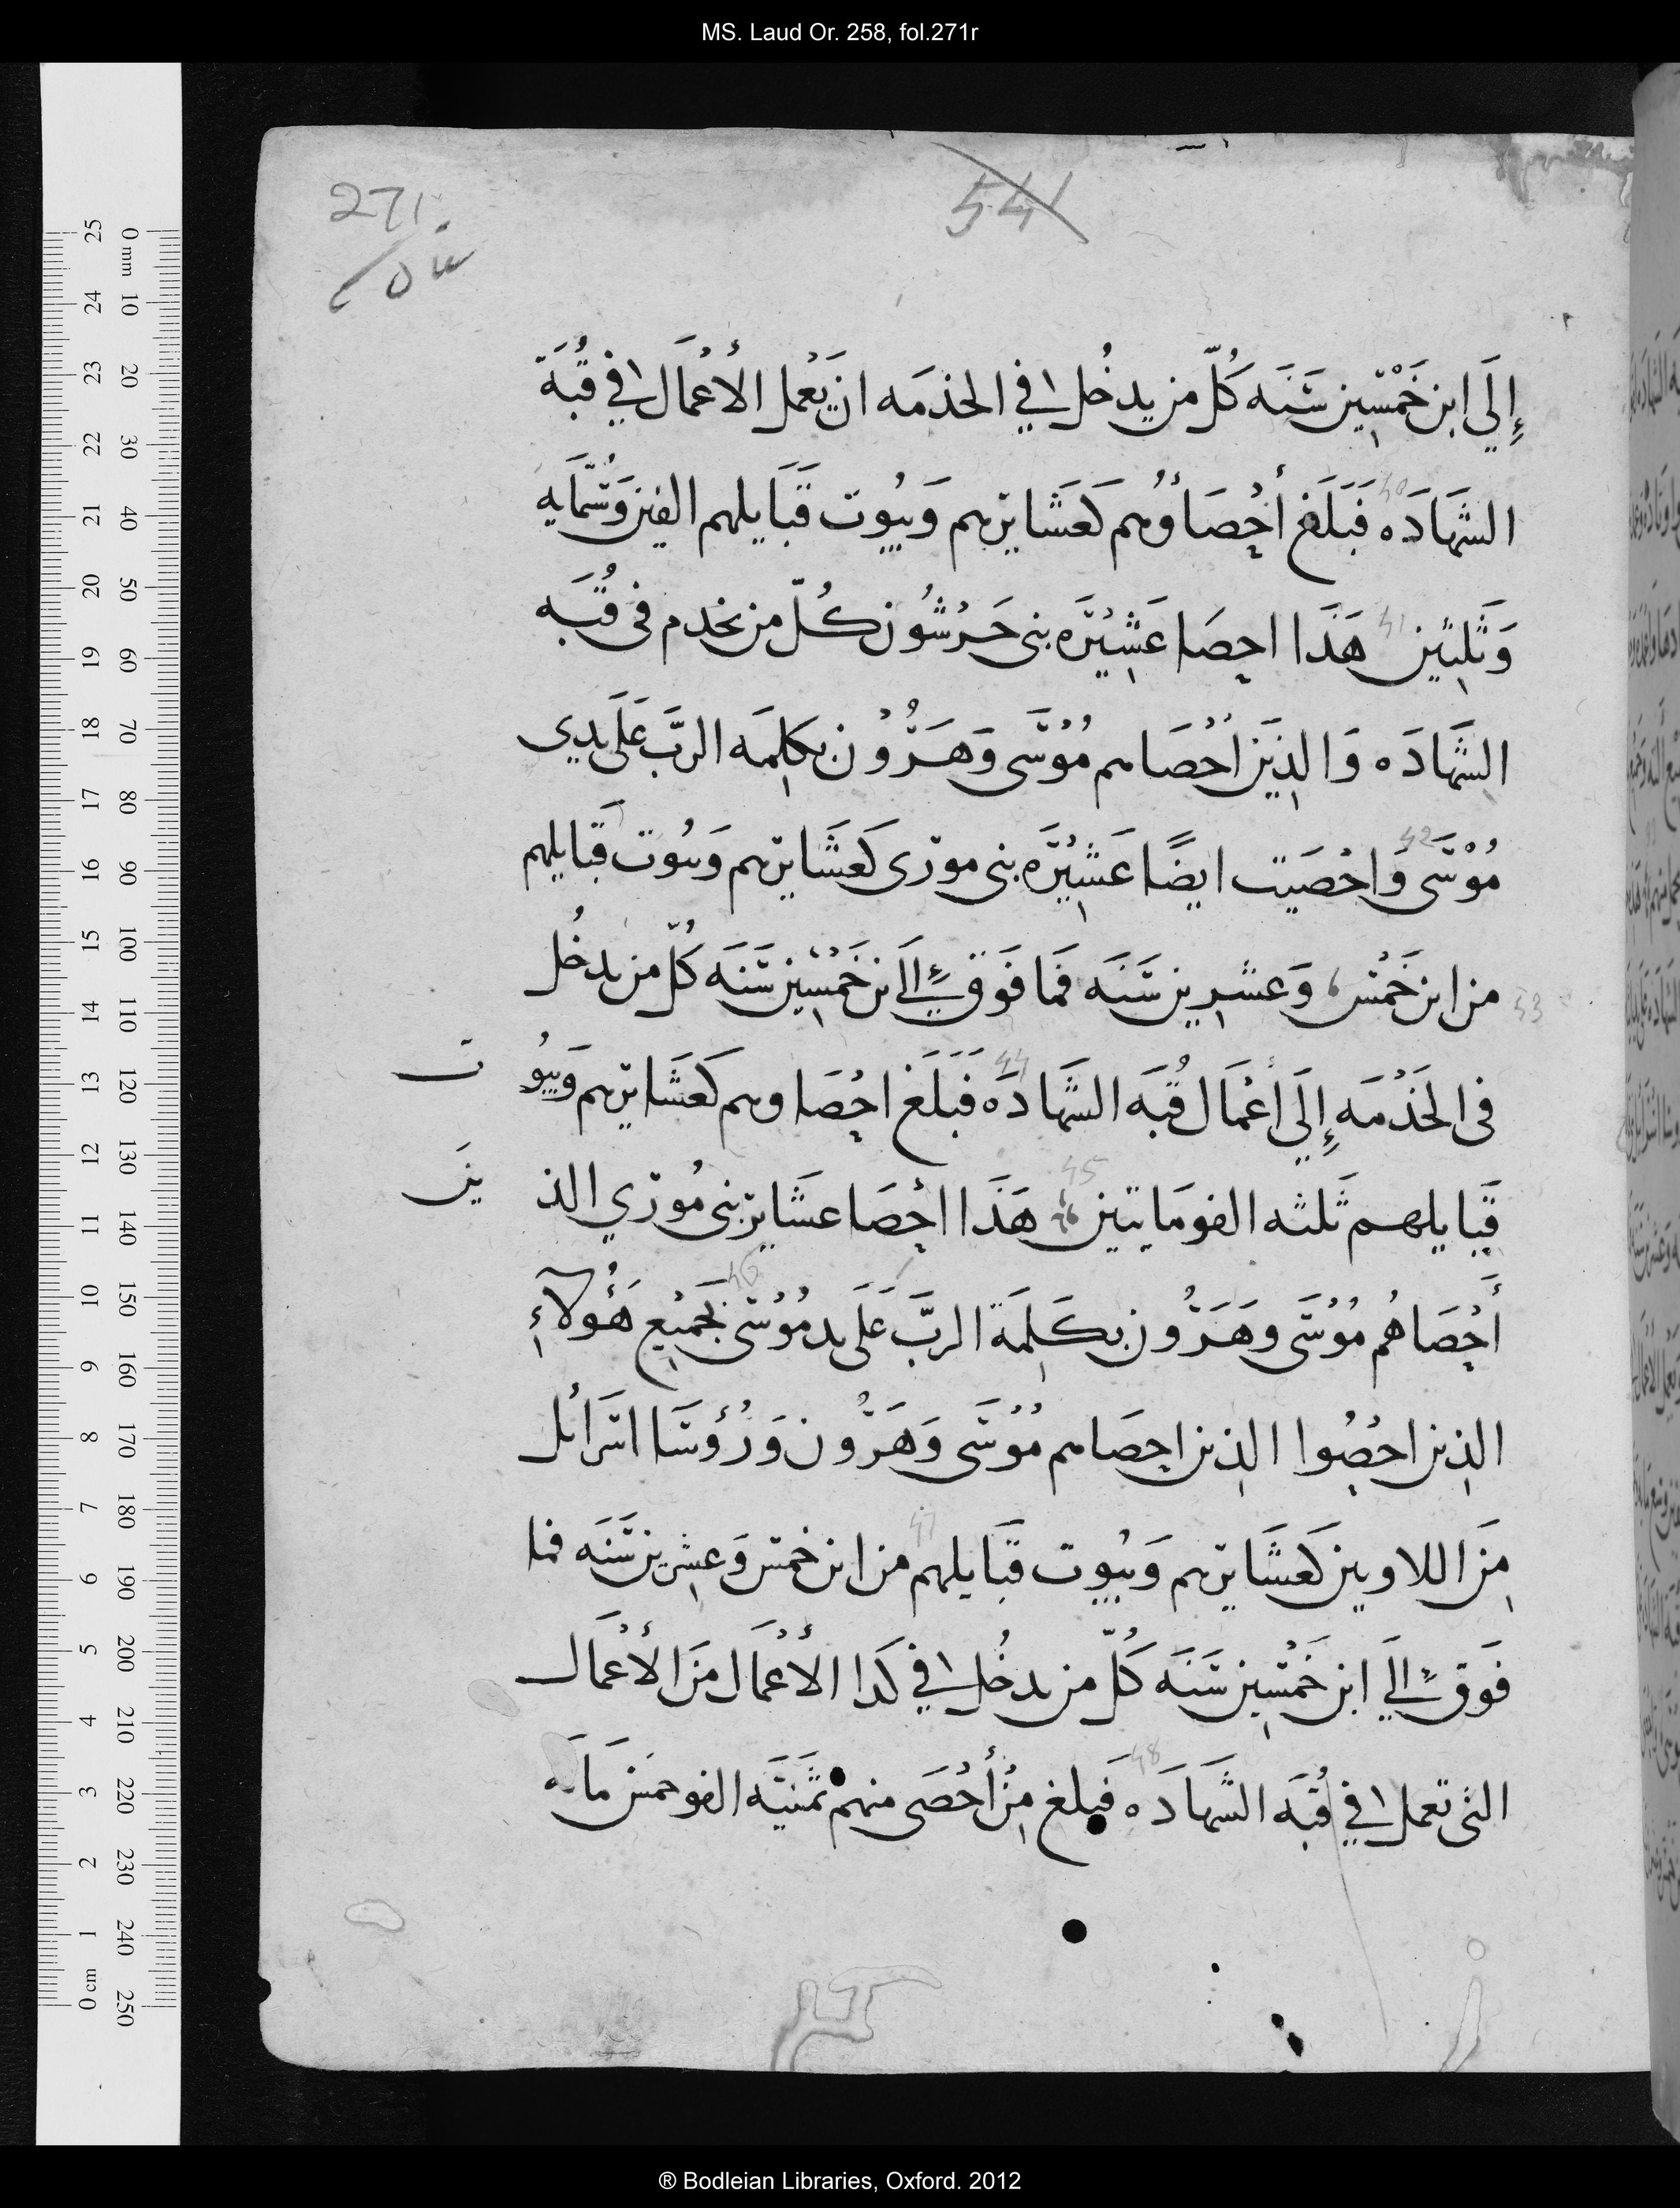 MS. Laud Or. 258, fol.271r
271.
541
إِلَي ابن خَمْسِين سَنَه كُلّ من يدخُل في الخدمَه ان يَعْمل الأعْمَال في قُبَة
40
الشَهَادَه فَبَلَغ أحْصَاؤُهم كَعَشَايرهم وَبيُوت قَبَايلهم الفين وَسُّمَايه
41
وَثَلثين هَذَا احصَا عَشِيْرَه بنى جَرشُون كُلّ من يخدم فى قُبَه
الشَهَادَه وَالذِيَن احْصَاهم مُوْسَى وَهَرُوْن بكلمَه الربَّ عَلَى يدى
42
مُوْسَى وَاحْصَيت ايضًا عَشِيْرَه بنى مورى كَعَشَايرهم وَبيُوت قَبايلهم
43
من ابن خَمْس وَعشرين سَنَه فمَا فَوَق إلَى ابن خَمْسِين سَنَه كُلّ من يدخُل
44
فى الخَذْمَه إِلَى أعْمَال قُبَه الشَهادَه فَبَلَغ احْصَاوهم كَعَشَايرهم وَبيُوت
45
قَبايلهم ثَلثه الف ومَايتين هَذَا احْصَا عشَاير بنى مُورَي الذين
46
أَحْصَاهُم مُوْسَى وهَرُون بكَلِمَة الربَّ عَلَى يد مُوْسَى فجَمِيْع هَؤُلآءِ
الذين احصُوا الذين احصَاهم مُوْسَى وَهَرُون وَرُؤسَا اسَرائل
47
مِنَ اللاويين كَعشَايرهم وَبيُوت قبَايلهم من ابن خمس وَعشرين سَنَه فما
فَوَق إلَي ابن خَمْسِين سَنَه كُلّ من يدخُل في كَدا الأعْمَال مَن الأعْمَال
48
التى تعمل في قُبَه الشَهَادَه فبلغ مِن أحْصَى منهم ثمَنيَه الف وخمس مَايَه
® Bodleian Libraries, Oxford. 2012